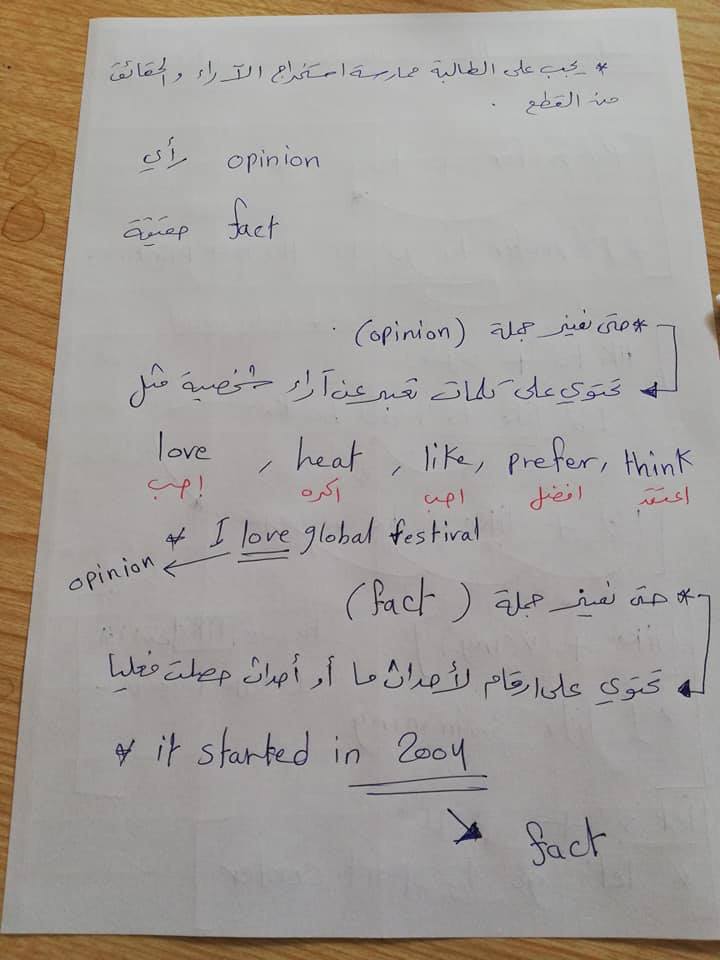 * يجب على الطالبة ممارسة استخراج الآراء والحقائق
من القطع .
رأي opinion
حقيقة fact
* حتى نميز جملة (opinion) .
تحتوي على كلمات تعبر عن آراء شخصية مثل
love , heat , like, prefer, think
احب اكره احب افضل اعتقد
* I love global festival
opinion
* حتى نميز جملة (fact)
تحتوي على ارقام لأحداث ما أو أحداث حصلت فعليا
* it started in 2004
fact